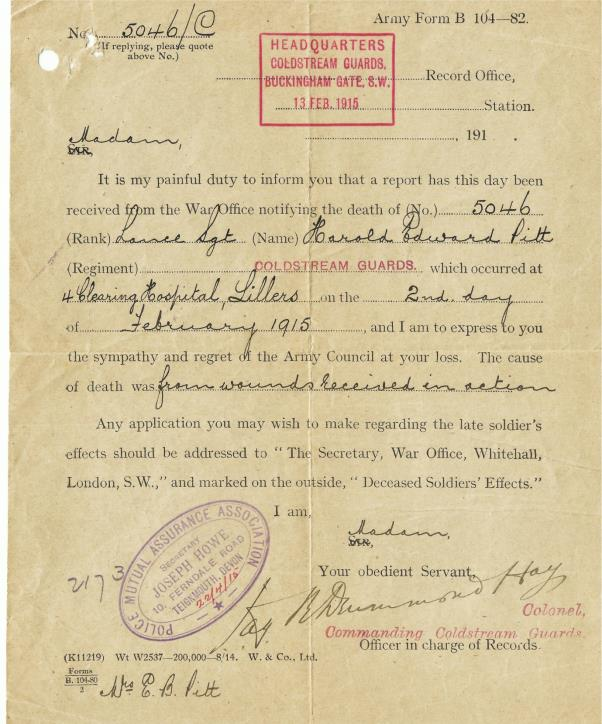 Army Form B 104—82.
No. 5046/C
(If replying, please quote
above No.)
HEADQUARTERS
COLDSTREAM GUARDS,
BUCKINGHAM GATE, S.W.
13 FEB. 1915
Record Office,
Station.
, 191 .
Madam,
SIR,
It is my painful duty to inform you that a report has this day been
received from the War Office notifying the death of (No.) 5046
(Rank) Lance Sgt (Name) Harold Edward Pitt
(Regiment) COLDSTREAM GUARDS. which occurred at
4 Clearing Hospital, Lillers on the 2nd. day
of February 1915, and I am to express to you
the sympathy and regret of the Army Council at your loss. The cause
of death was from wounds received in action
Any application you may wish to make regarding the late soldier's
effects should be addressed to "The Secretary, War Office, Whitehall,
London, S.W.," and marked on the outside, "Deceased Soldiers' Effects."
I am,
Madam,
SIR,
Your obedient Servant,
R Drummond Hay
Colonel,
Commanding Coldstream Guards.
Officer in charge of Records.
POLICE MUTUAL ASSURANCE ASSOCIATION
SECRETARY
JOSEPH HOWE
10, FERNDALE ROAD
TEIGNMOUTH, DEVON
22/4/15
2173
(K11219) Wt W2537—200,000—8/14. W. & Co., Ltd.
Forms
B. 104-80
2
Mrs E. B. Pitt